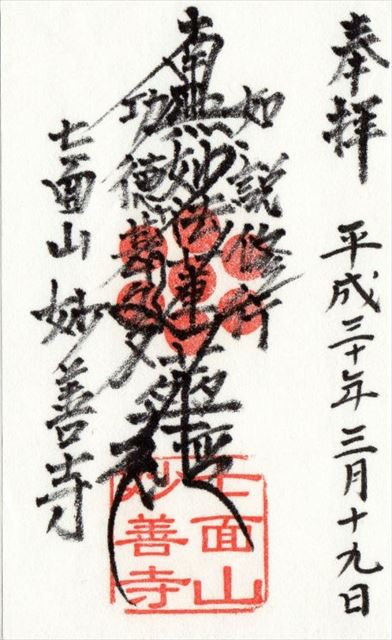 奉拝
平成三十年三月十九日
如説修行
南無妙法蓮華経
功徳甚多
七面山
妙善寺
七面山
妙善寺